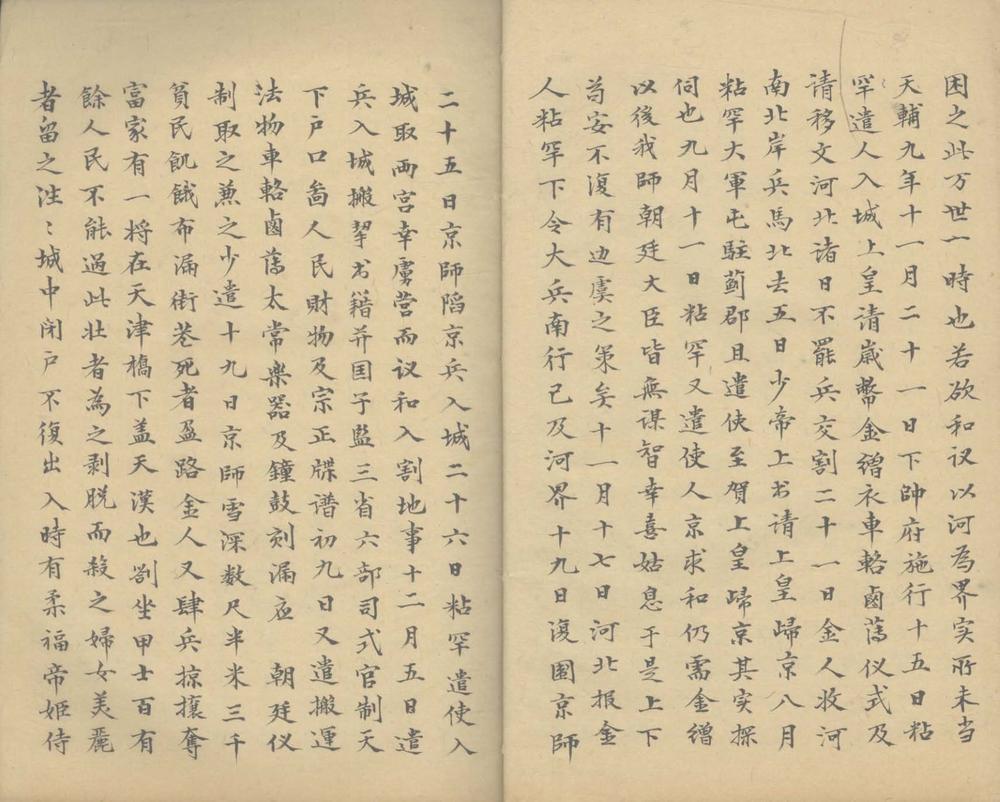 困之此万世一時也若欲和议以河為界实所未当
天輔九年十一月二十一日下帥府施行十五日粘
罕遣人入城上皇清嵗幣金繒衣車輅鹵薄仪式及
请移文河北诸日不罷兵交割二十一日金人收河
南北岸兵馬北去五日少帝上书请上皇㱕京八月
粘罕大軍屯駐蓟郡且遣使至賀上皇㱕京其实探
伺也九月十一日粘罕又遣使人京求和仍需金繒
以後我師朝廷大臣皆無谋智幸喜姑息于是上下
苟安不復有边虞之策矣十一月十七日河北报金
人粘罕下令大兵南行已及河界十九日復圍京師
二十五日京師陷京兵入城二十六日粘罕遣使入
城取两宫幸虜营而议和入割地事十二月五日遣
兵入城搬挐书籍并国子監三省六部司式官制天
下户口啚人民財物及宗正牒谱初九日又遣搬運
法物車輅鹵薄太常樂器及鐘鼓刻漏应 朝廷仪
制取之蕪之少遣十九日京師雪深数尺半米三千
貧民飢餓布滿街巷死者盈路金人又肆兵掠攘奪
富家有一将在天津橋下盖天漢也劄坐甲士百有
餘人民不能過此壮者為之剥脱而殺之婦女美麗
者留之泩〻城中闭户不復出入時有柔福帝姬侍